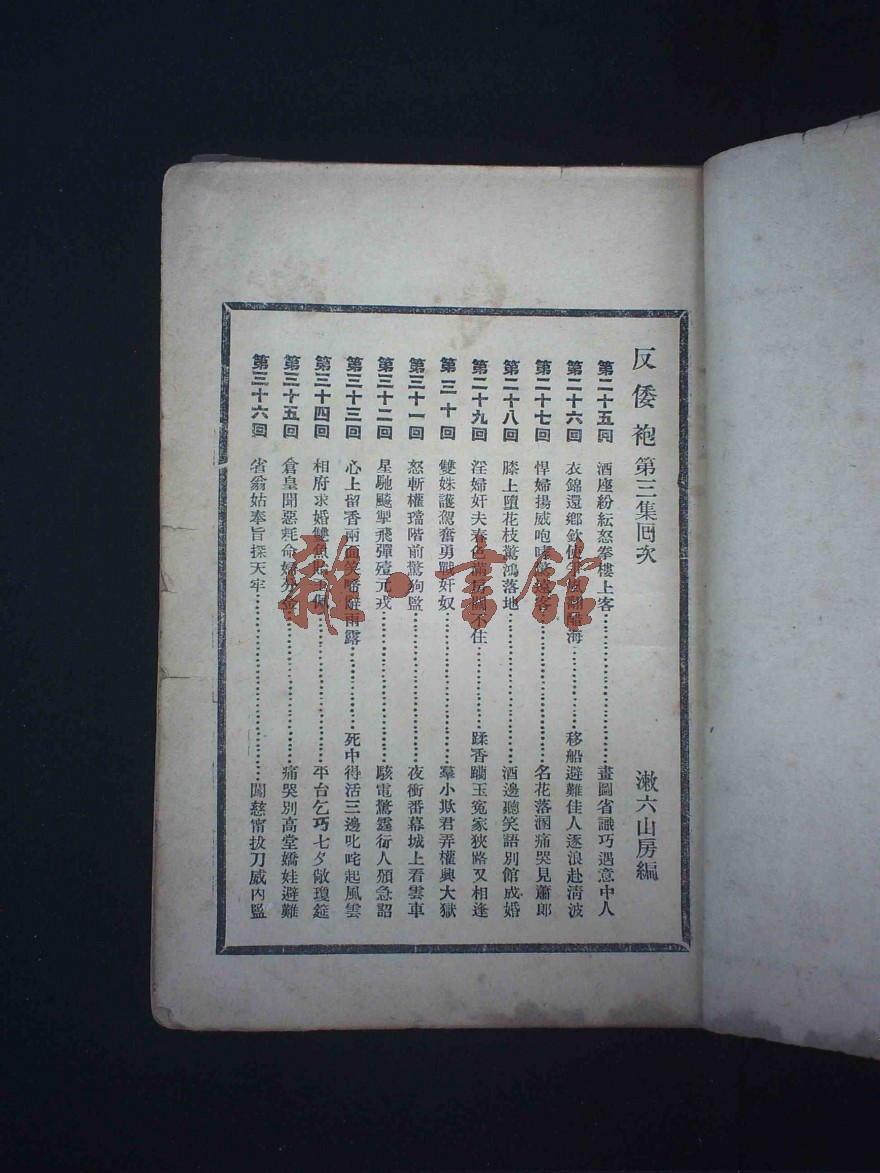 反倭袍第三集回次 漱六山房編
第二十五回 酒座紛紜怒拳樓上客…………畫圖省識巧遇意中人
第二十六回 衣錦還鄉欽使 醋海…………移船避難佳人逐浪赴清波
第二十七回 悍婦揚威咆哮驚遠客…………名花落溷痛哭見蕭郎
第二十八回 膝上墮花枝驚鴻落地…………酒邊聽笑語別館成婚
第二十九回 淫婦奸夫春色滿房關不住…………蹂香躪玉冤家狹路又相逢
第三十回 雙姝護駕奮勇戰奸奴…………羣小欺君弄權興大獄
第三十一回 怒斬權璫階前驚狗監…………夜衝番幕城上看雲車
第三十二回 星馳飈掣飛彈殪元戎…………駭電驚霆行人頒急詔
第三十三回 心上留香兩面笑啼 雨露…………死中得活三邊叱咤起風雲
第三十四回 相府求婚雙魚 佩…………平台乞巧七夕敞瓊筵
第三十五回 倉皇聞惡耗命婦 …………痛哭別高堂嬌娃避難
第三十六回 省翁姑奉旨探天牢…………鬧慈甯拔刀威內監
龍·書館